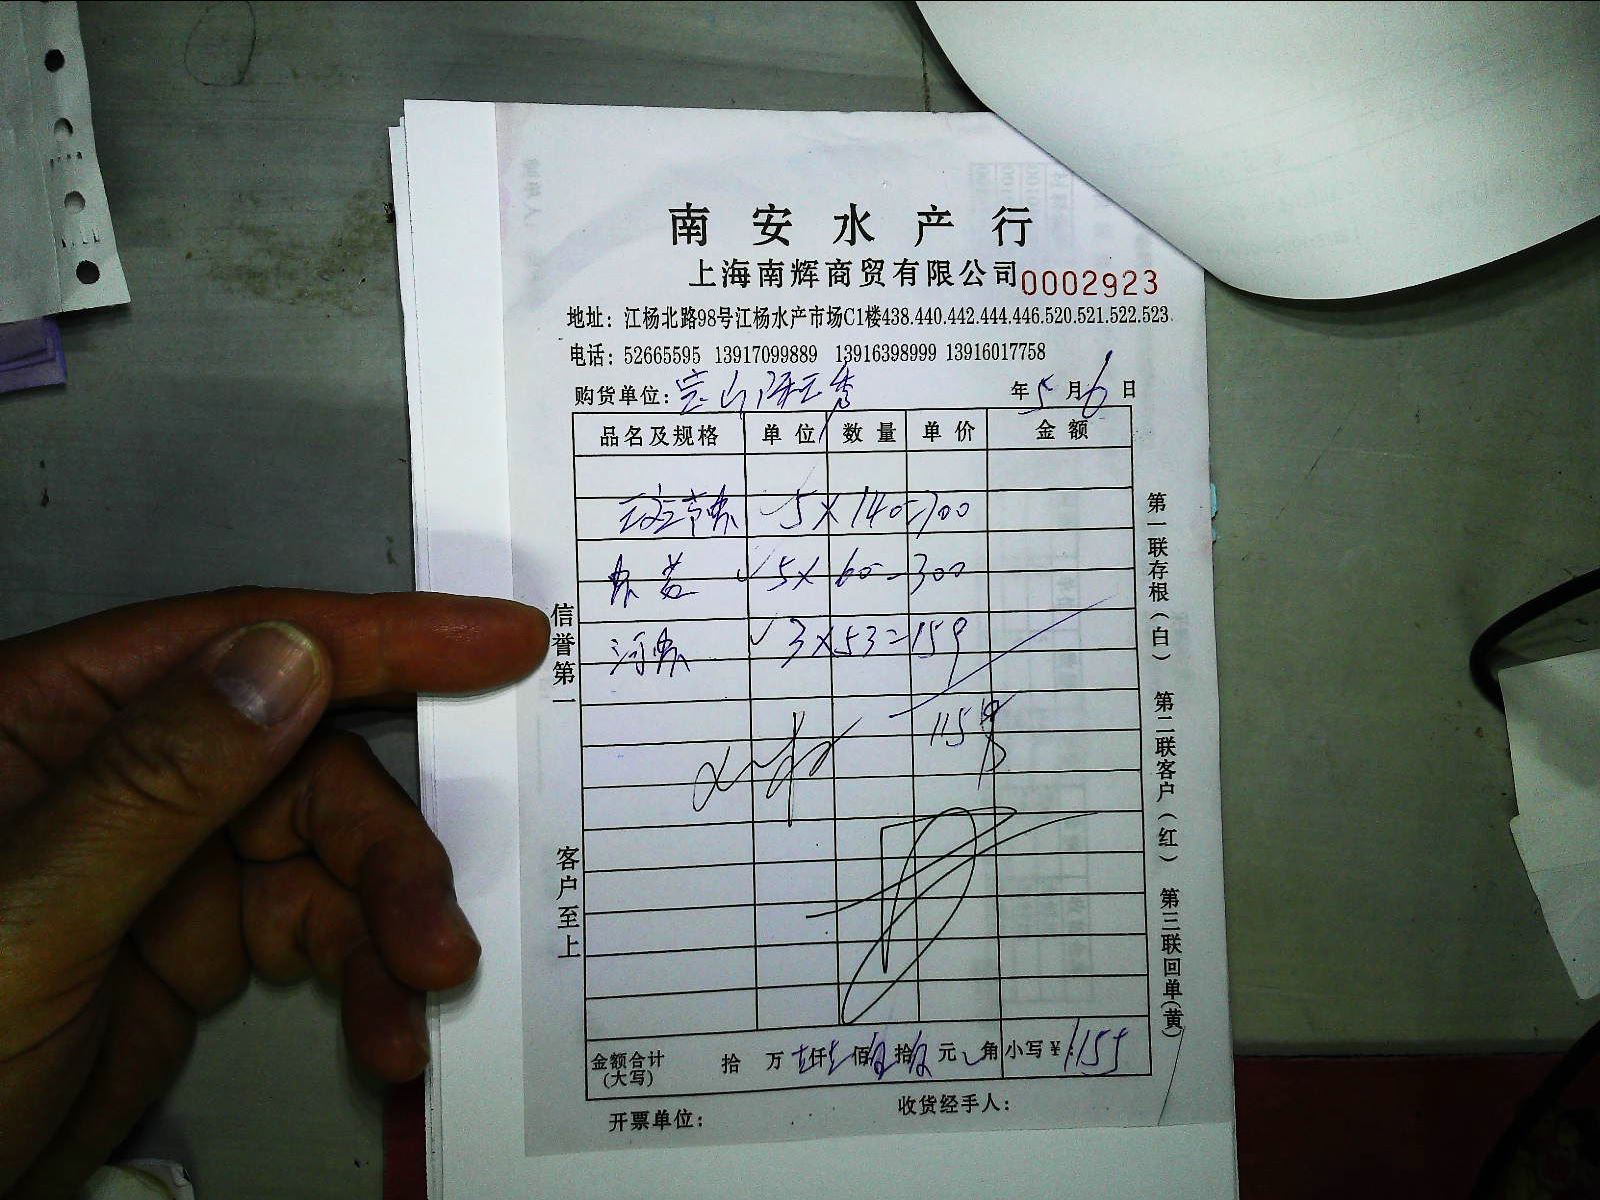 南安水产行
上海南辉商贸有限公司 0002923
地址：江杨北路98号江杨水产市场C1楼438.440.442.444.446.520.521.522.523.
电话：52665595 13917099889 13916398999 13916017758
购货单位：宝山 年5月6日
品名及规格 单位 数量 单价 金额
5×140=700
5×60=300
3×53=159
1159
金额合计(大写) 拾 万 仟 佰 拾 元 角 小写￥：1155
开票单位： 收货经手人：
信誉第一
客户至上
第一联存根(白)
第二联客户(红)
第三联回单(黄)